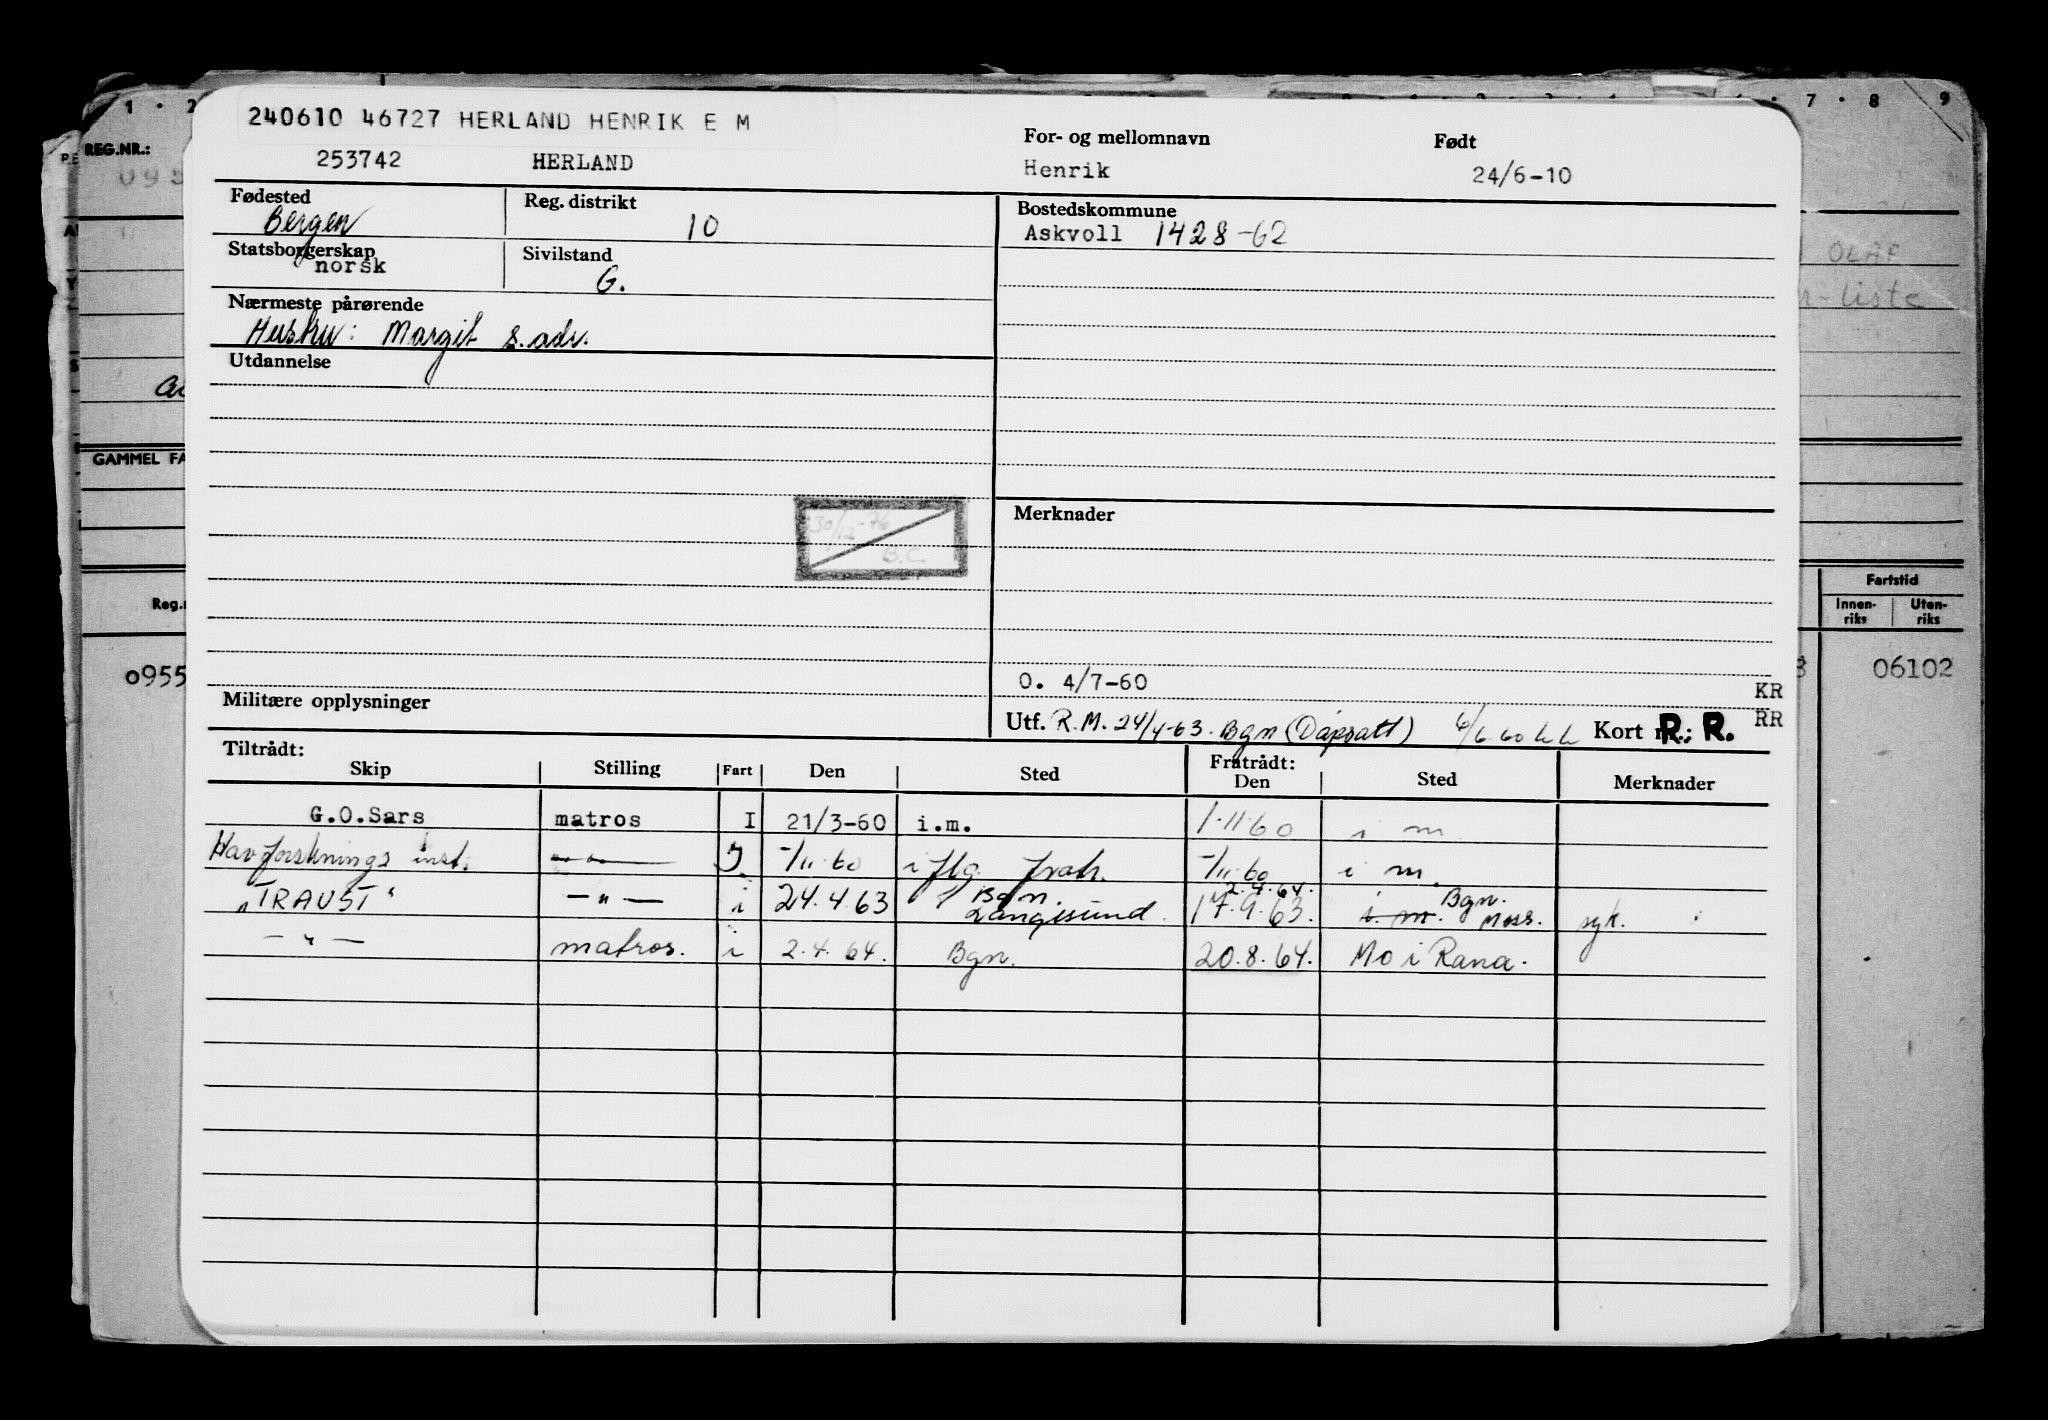 1 · 2
7 · 8
9
REG.NR.:
240610 46727 HERLAND HENRIK E M
253742 HERLAND
For- og mellomnavn
Henrik
Født
24/6-10
Fødested
Bergen
Reg. distrikt
10
Bostedskommune
Askvoll 1428-62
Statsborgerskap
norsk
Sivilstand
G.
OLAF
Nærmeste pårørende
Hustru: Margit s. adr.
liste
Utdannelse
GAMMEL FA
30/12-76
B.C.
Merknader
Fartstid
Innen-
riks
Uten-
riks
o955
06102
O. 4/7-60
KR
RR
Militære opplysninger
Utf. R.M. 24/4-63. Bgn (Dåpsatt) 6/6 60 Kort R.: R.
Tiltrådt:
Skip Stilling Fart Den Sted
Fratrådt:
Den Sted Merknader
G.O.Sars matros I 21/3-60 i.m. 1-11-60 i m
Havforsknings inst. —"— I -/11-60 i flg. fratr. -/11-60 i m.
2.4.64.
"TRAUST" —"— i 24.4.63 Bgn. Langesund. 17.9.63. i. m. Bgn. Moss. syk.
—"— matros. i 2.4.64. Bgn. 20.8.64. Mo i Rana.